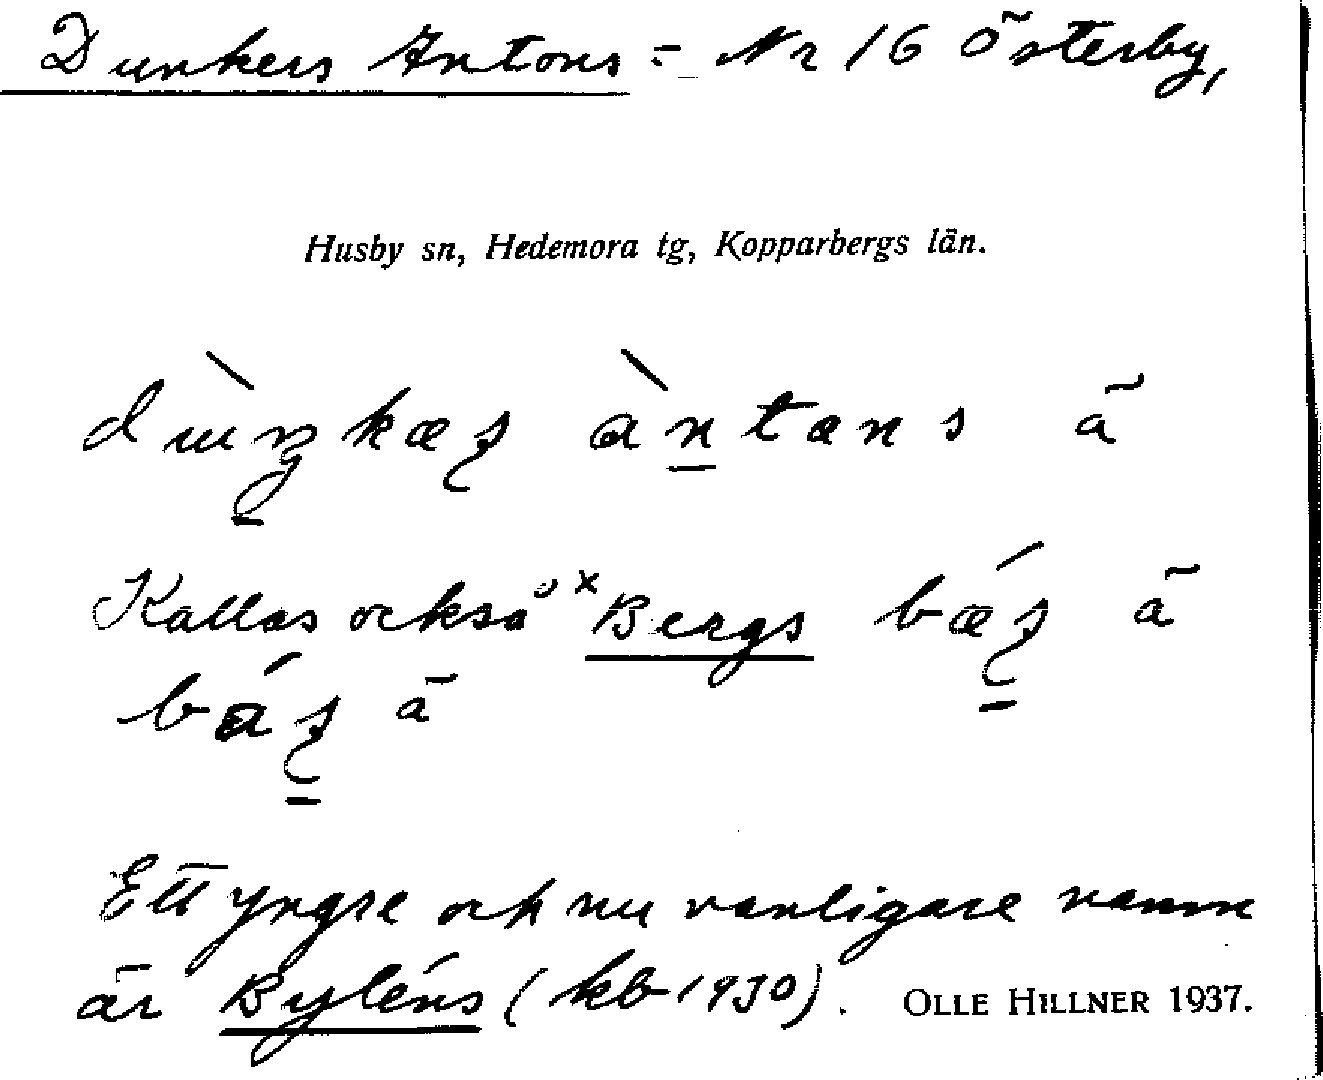 Dunkers Antons = Nr 16 Österby,
Husby sn, Hedemora tg, Kopparbergs län.
antans ä
Kallas också ˣBergs bæʂ ä
báʂ ä
Ett yngre och nu vanligare namn
är Byléns (kb 1930). OLLE HILLNER 1937.